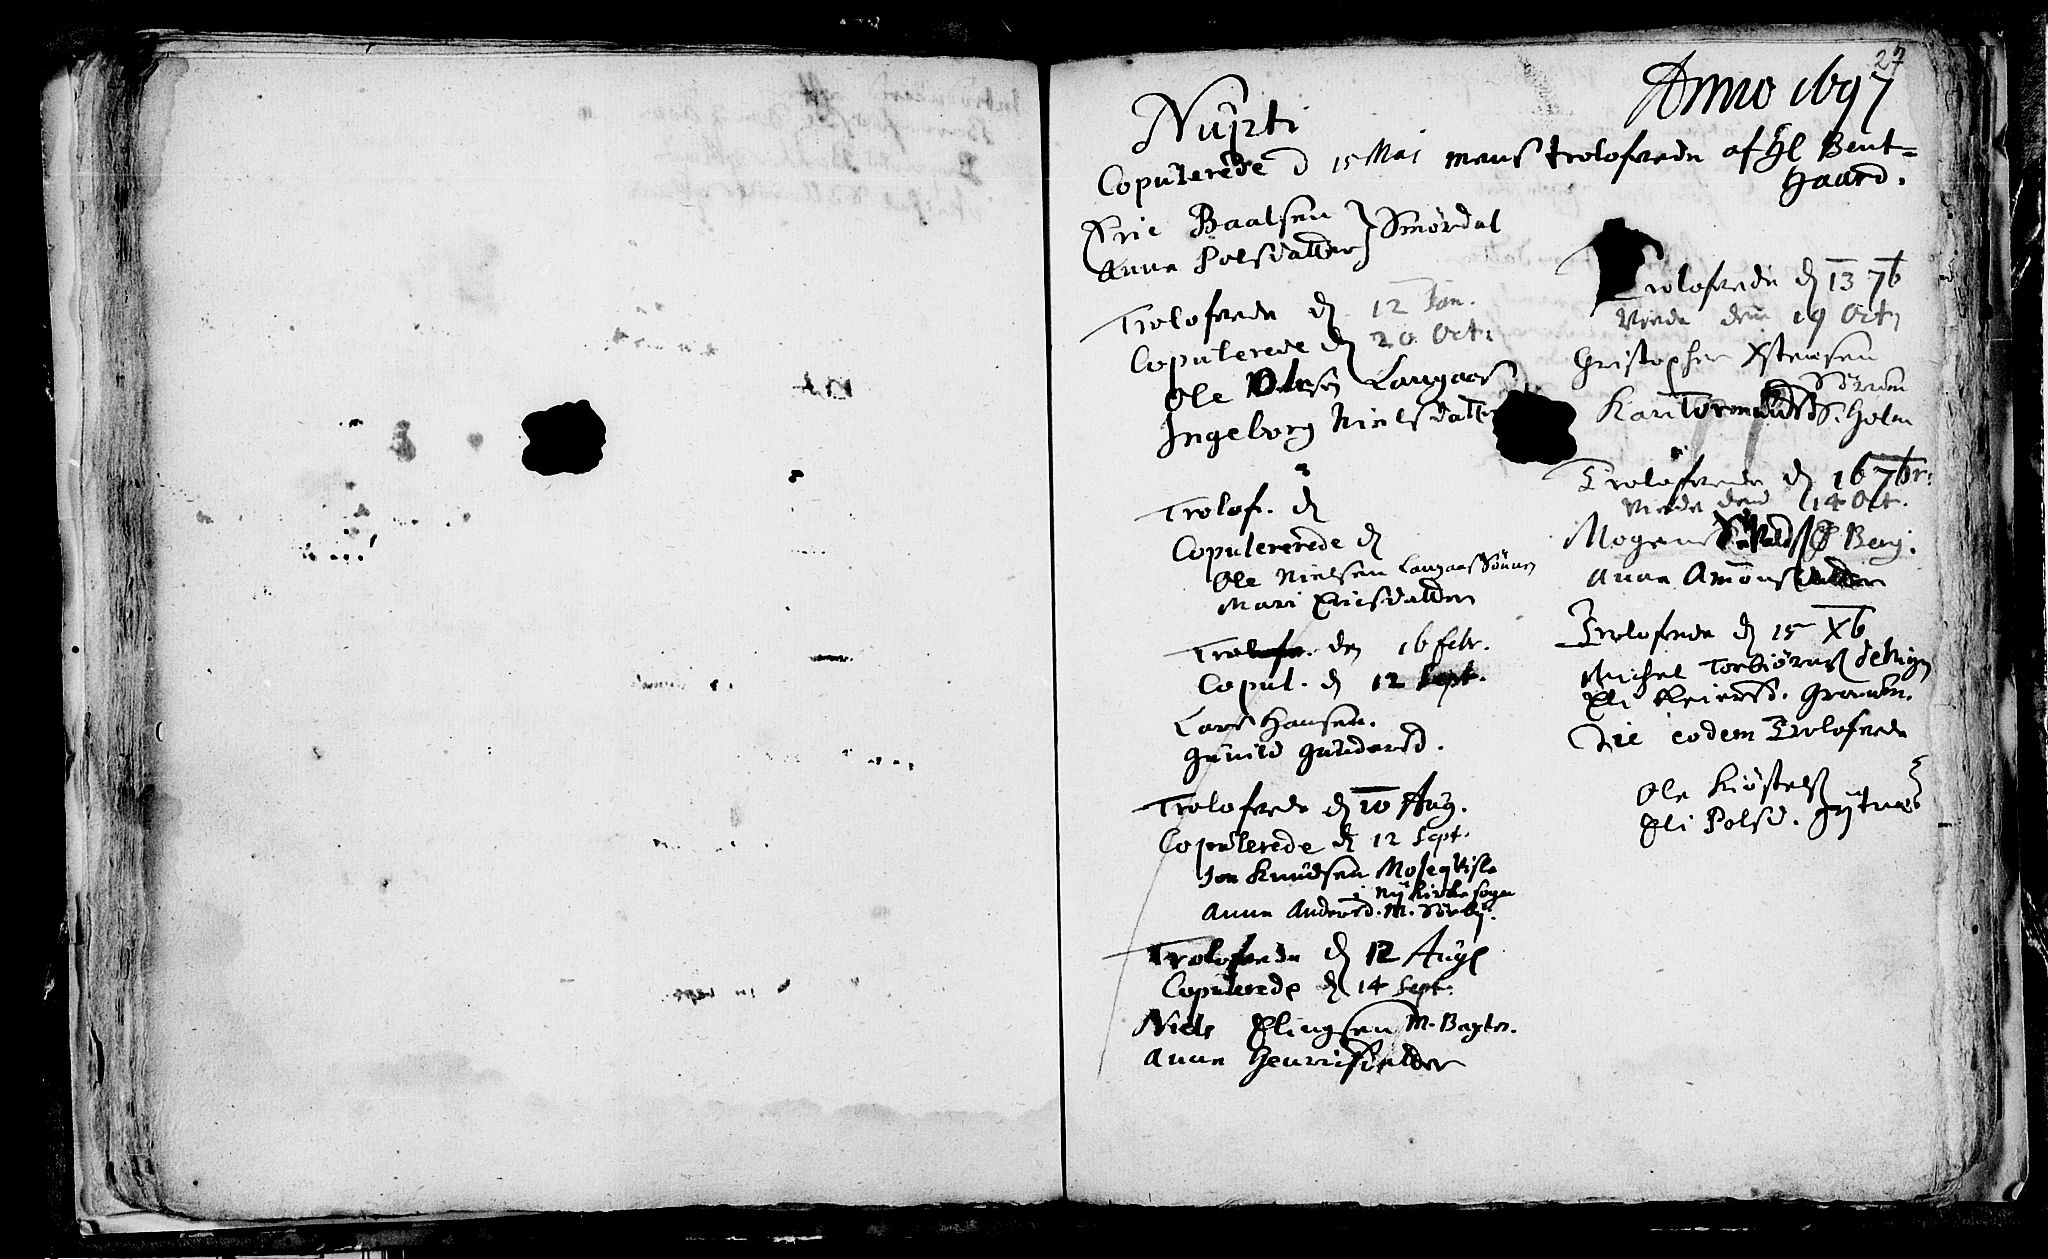 27
Anno 1697
Nupti
Copulerede d 15 Mai mens trolofvede af Hl Bent=
Haard.
Eric Baalsen } Smördal
Anna Polsdatter
Trolofvede d 12 Jan.
Copulerede d 20 Oct:
Ole Olsen Langaas
Ingeborg Nielsdatt
Trolof. d
Copulererede d
Ole Nielsen Langaas
Mari Ericsdatter
Trolofv. den 16 febr.
Copul. d 12 Sept.
Lars Hansen.
Gunild Gundersd.
Trolofvede d 10 Aug.
Copulerede d 12 Sept.
Jon Knudsen
i Nykirke sogn
Anna Andersd. M.
Trolofvede d 12 Aug
Copulerede d 14 Sept.
Niels Elingsen M.
Anna Henrichsdatter
Trolofvede d 13 7b
Viede den 19 Oct
Christopher Xstensen
Kari S. Holm
Trolofvede d 16 7br:
Viede dend 14 Oct.
Mogens Berg.
Anna Amonsdatter
Trolofvede d 15 Xb
Michel Torbiörns
Eli
Die eodem Trolofvede
Ole Kiöstels
Eli Polsd.